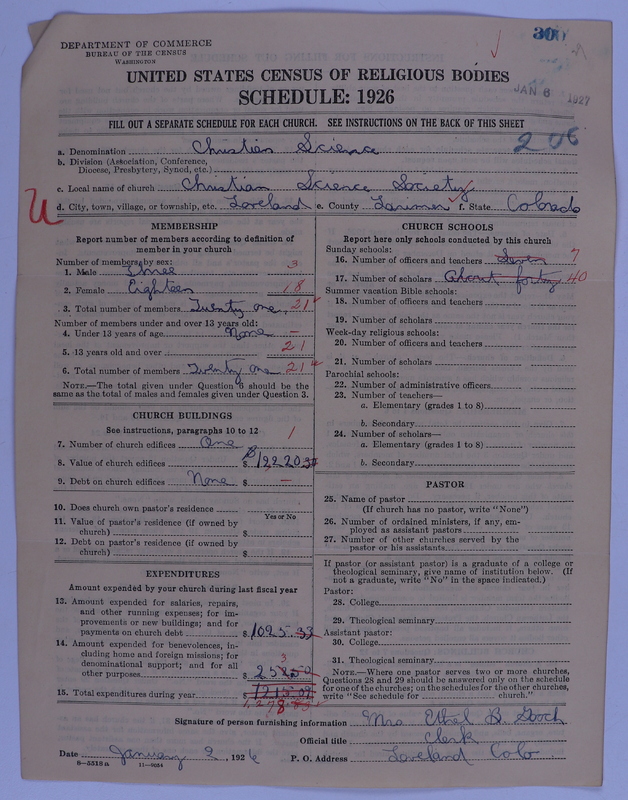 300
DEPARTMENT OF COMMERCE
BUREAU OF THE CENSUS
WASHINGTON
UNITED STATES CENSUS OF RELIGIOUS BODIES
SCHEDULE: 1926
JAN 6 1927
FILL OUT A SEPARATE SCHEDULE FOR EACH CHURCH. SEE INSTRUCTIONS ON THE BACK OF THIS SHEET
206
a. Denomination Christian Science
b. Division (Association, Conference,
Diocese, Presbytery, Synod, etc.)
c. Local name of church Christian Science Society
d. City, town, village, or township, etc. Loveland e. County Larimer f. State Colorado
MEMBERSHIP
Report number of members according to definition of
member in your church
Number of members by sex:
1. Male Three 3
2. Female Eighteen 18
3. Total number of members Twenty one, 21
Number of members under and over 13 years old:
4. Under 13 years of age None —
5. 13 years old and over 21
6. Total number of members Twenty one 21
NOTE.—The total given under Question 6 should be the
same as the total of males and females given under Question 3.
CHURCH BUILDINGS
See instructions, paragraphs 10 to 12
7. Number of church edifices One 1
8. Value of church edifices $
9. Debt on church edifices None $ —
10. Does church own pastor's residence
Yes or No
11. Value of pastor's residence (if owned by
church) $
12. Debt on pastor's residence (if owned by
church) $
EXPENDITURES
Amount expended by your church during last fiscal year
13. Amount expended for salaries, repairs,
and other running expenses; for im-
provements or new buildings; and for
payments on church debt $ 1025.33
14. Amount expended for benevolences, in-
cluding home and foreign missions; for
denominational support; and for all
other purposes $
15. Total expenditures during year $
CHURCH SCHOOLS
Report here only schools conducted by this church
Sunday schools:
16. Number of officers and teachers Seven 7
17. Number of scholars About forty 40
Summer vacation Bible schools:
18. Number of officers and teachers
19. Number of scholars
Week-day religious schools:
20. Number of officers and teachers
21. Number of scholars
Parochial schools:
22. Number of administrative officers
23. Number of teachers—
a. Elementary (grades 1 to 8)
b. Secondary
24. Number of scholars—
a. Elementary (grades 1 to 8)
b. Secondary
PASTOR
25. Name of pastor
(If church has no pastor, write "None")
26. Number of ordained ministers, if any, em-
ployed as assistant pastors
27. Number of other churches served by the
pastor or his assistants
If pastor (or assistant pastor) is a graduate of a college or
theological seminary, give name of institution below. (If
not a graduate, write "No" in the space indicated.)
Pastor:
28. College
29. Theological seminary
Assistant pastor:
30. College
31. Theological seminary
NOTE.—Where one pastor serves two or more churches,
Questions 28 and 29 should be answered only on the schedule
for one of the churches; on the schedules for the other churches,
write "See schedule for church."
Signature of person furnishing information Mrs Ethel B. Gooch
Official title Clerk
Date January 2, 1926 P. O. Address Loveland Colo
8-5518a 11-9054